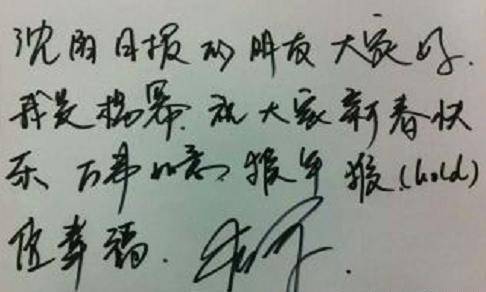 沈阳日报的朋友大家好.
我是杨幂.祝大家新春快
乐、万事如意、猴年猴(hold)
住幸福.